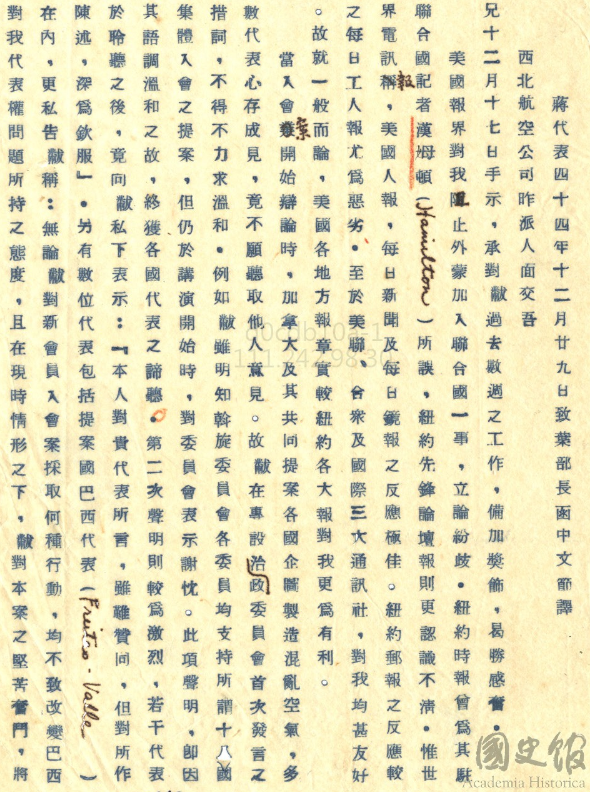 蔣代表四十四年十二月廿九日致葉部長函中文節譯
西北航空公司昨派人面交吾
兄十二月十七日手示，承對職過去數週之工作，備加獎飾，曷勝感奮。
美國報界對我阻止外蒙加入聯合國一事，立論紛歧。紐約時報曾爲其駐
聯合國記者漢姆頓（Hamilton）所誤，紐約先鋒論壇報則更認識不清。惟世
界電訊報，美國人報，每日新聞及每日鏡報之反應極佳。紐約郵報之反應較
之每日工人報尤爲惡劣。至於美聯、合衆及國際三大通訊社，對我均甚友好
。故就一般而論，美國各地方報章實較紐約各大報對我更爲有利。
當入會案開始辯論時，加拿大及其共同提案各國企圖製造混亂空氣，多
數代表心存成見，竟不願聽取他人意見。故職在專設政治委員會首次發言之
措詞，不得不力求溫和。例如職雖明知斡旋委員會各委員均支持所謂十八國
集體入會之提案，但仍於講演開始時，對委員會表示謝忱。此項聲明，卽因
其語調溫和之故，終獲各國代表之諦聽。第二次聲明則較爲激烈，若干代表
於聆聽之後，竟向職私下表示：『本人對貴代表所言，雖難贊同，但對所作
陳述，深爲欽服』。另有數位代表包括提案國巴西代表（Freitas-Valle）
在內，更私告職稱：無論職對新會員入會案採取何種行動，均不致改變巴西
對我代表權問題所持之態度，且在現時情形之下，職對本案之堅苦奮鬥，將
d0cdb10a-1
111.242.98.30
國史館
Academia Historica